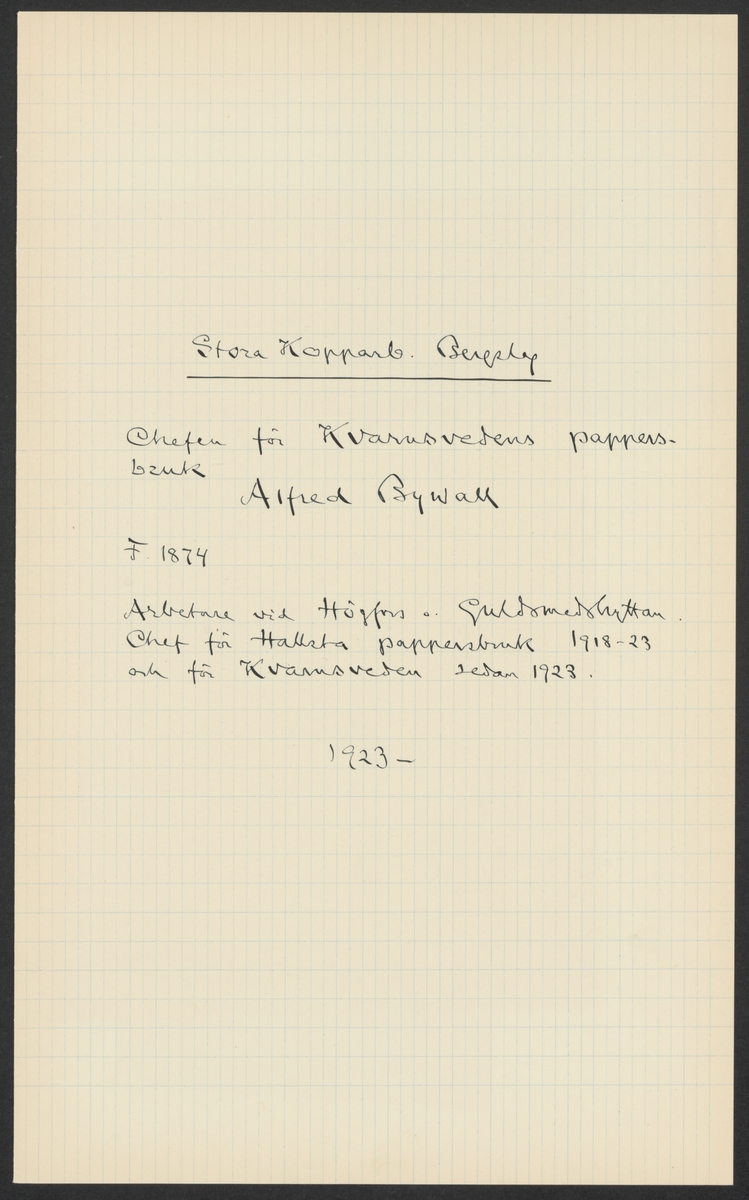 Stora Kopparb. Bergslag
Chefen för Kvarnsvedens pappers-
bruk
Alfred Bywall
F. 1874
Arbetare vid Högfors o. Guldsmedshyttan.
Chef för Hallsta pappersbruk 1918-23
och för Kvarnsveden sedan 1923.
1923-